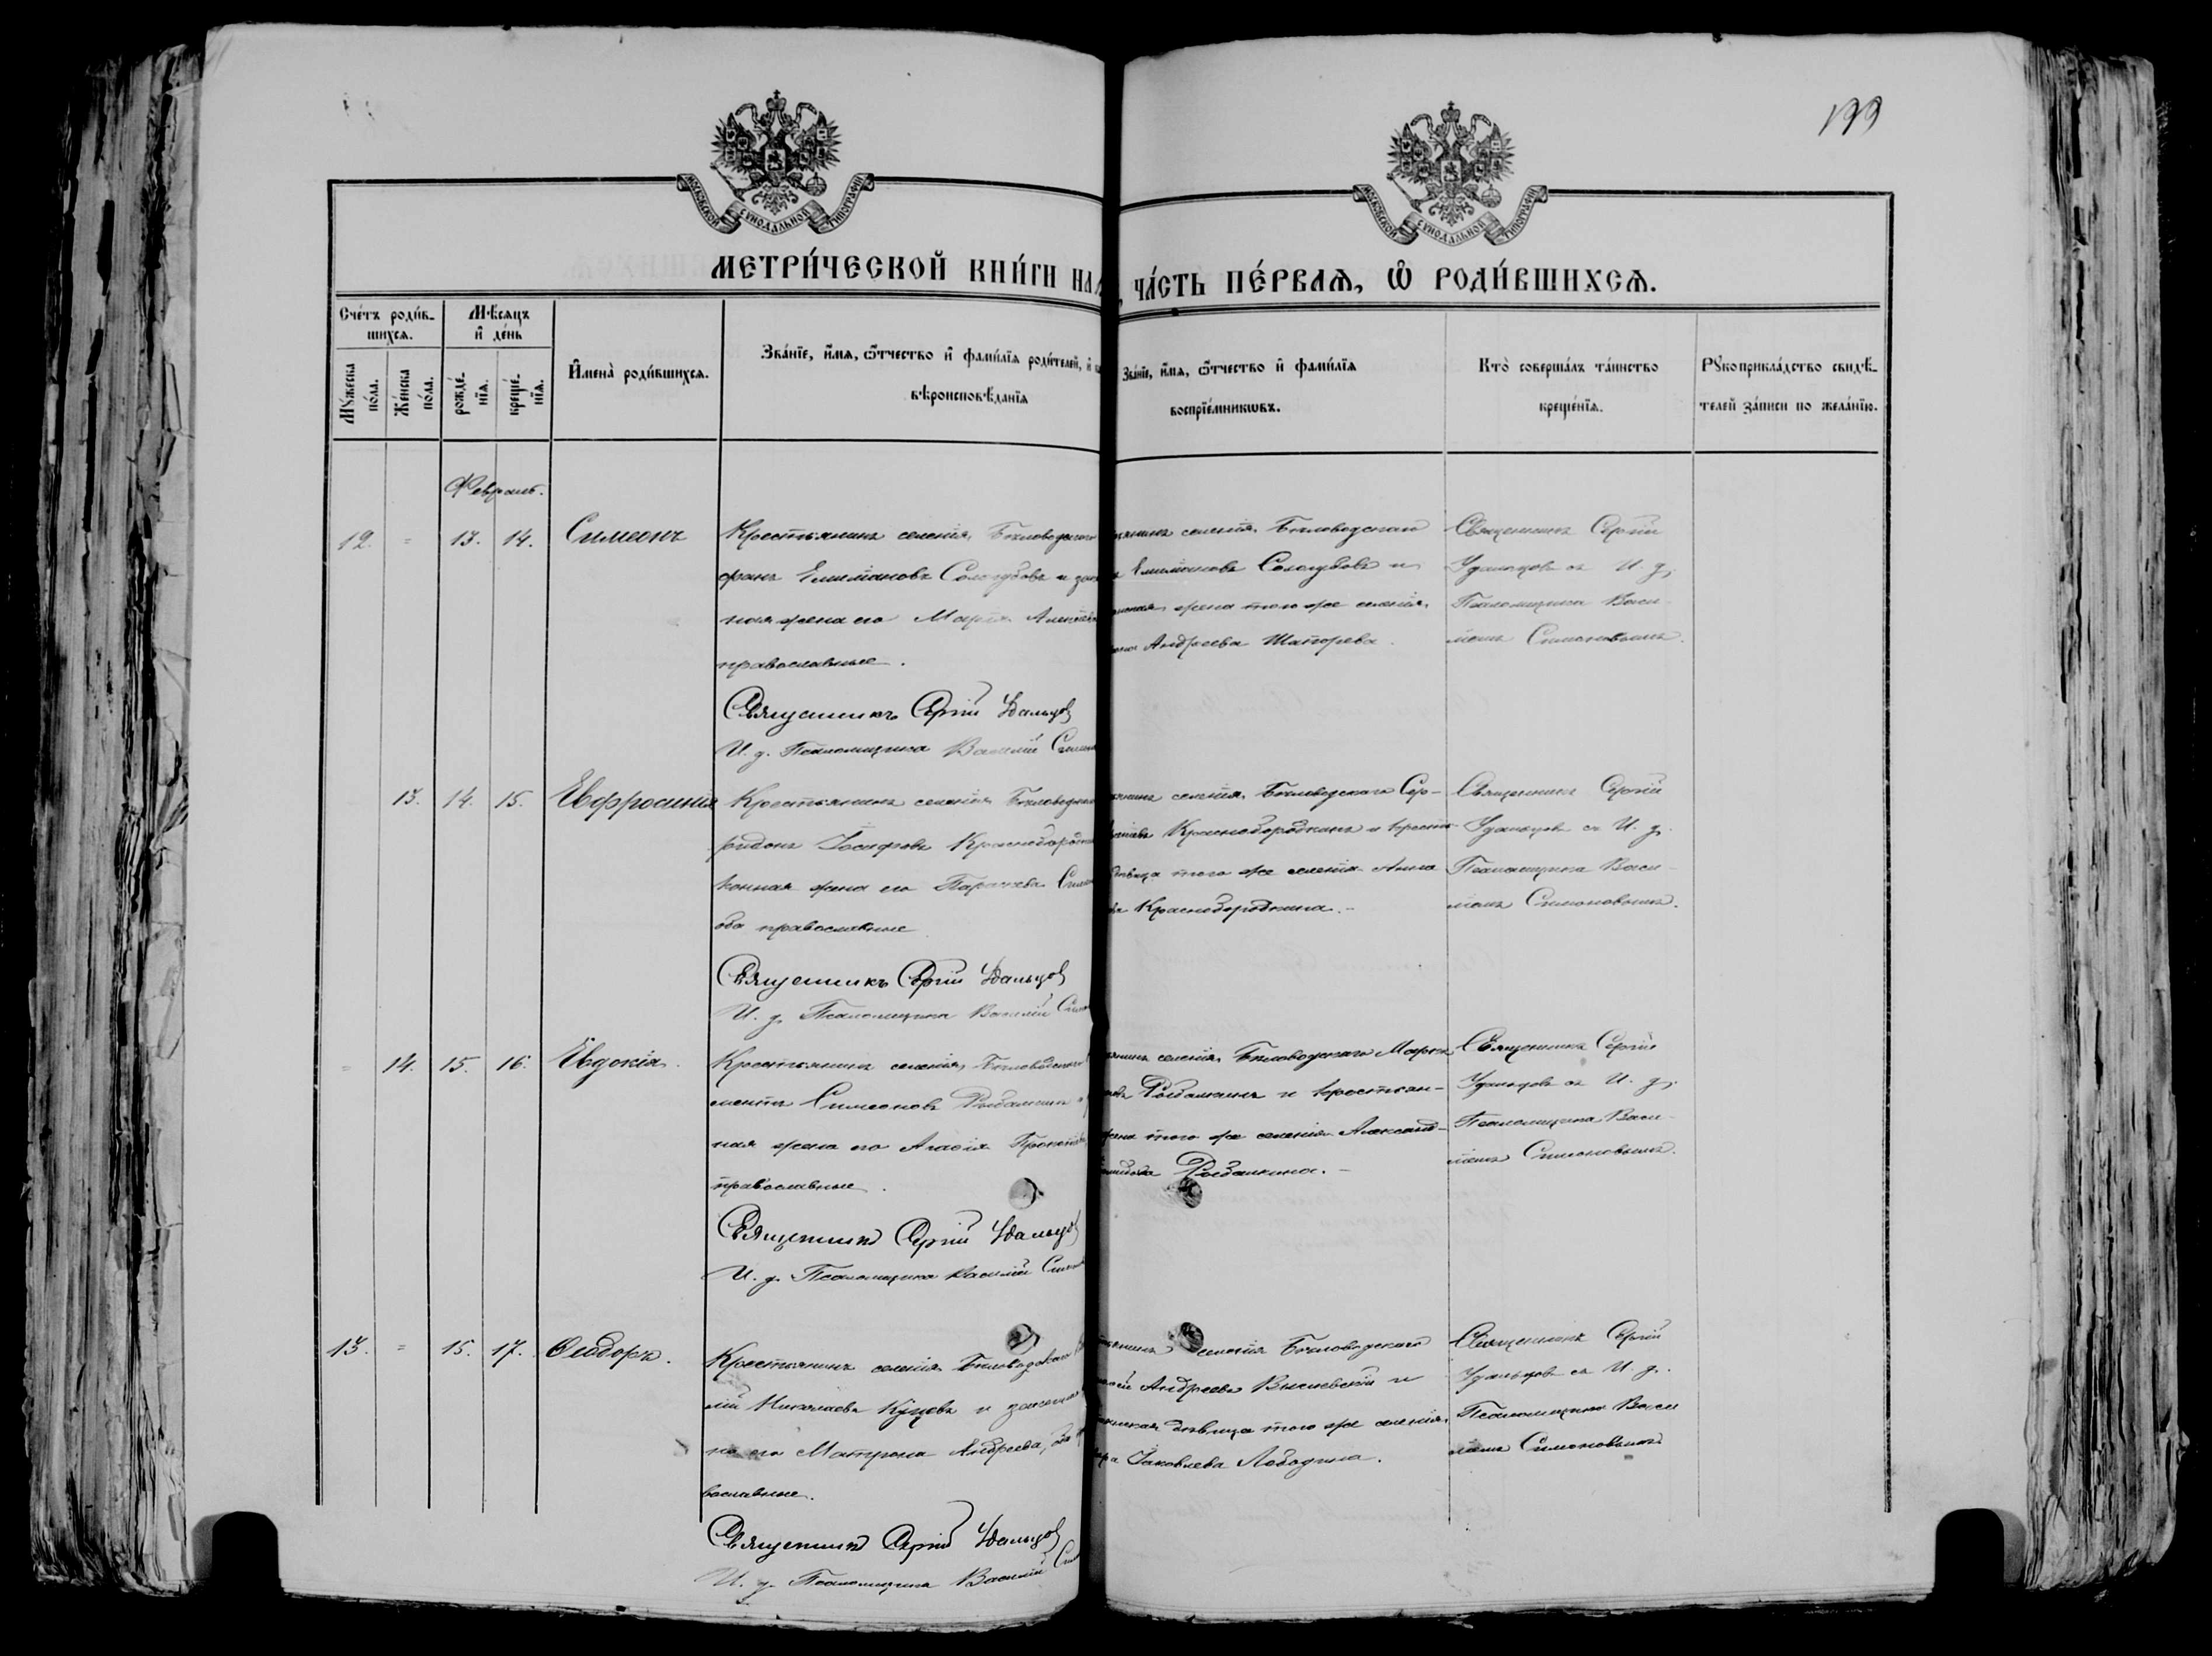 199
МОСКОВСКОЙ СѴНОДАЛЬНОЙ ТИПОГРАФІИ
МОСКОВСКОЙ СѴНОДАЛЬНОЙ ТИПОГРАФІИ
МЕТРИ́ЧЕСКОЙ КНИ́ГИ НА
ЧА́СТЬ ПЕ́РВАѦ, Ѽ РОДИ́ВШИХСѦ.
Сче́тъ роди́в-
шихсѧ.
Мꙋжеска по́ла.
Же́нска по́ла.
Мѣсѧцъ
и҆ де́нь
рожде́-нїѧ.
креще́-нїѧ.
И҆мена̀ роди́вшихсѧ.
Зва́нїе, и҆́мѧ, ѻ҆́тчество и҆ фами́лїѧ роди́телей, и҆
вѣроисповѣ́данїѧ
Зва́нїе, и҆́мѧ, ѻ҆́тчество и҆ фами́лїѧ
воспрїе́мникѡвъ.
Кто̀ соверша́лъ та́инство
креще́нїѧ.
Рꙋкоприкла́дство свидѣ́-
телей за́писи по жела́нїю.
Февраль.
12. = 13. 14. Симеонъ
Крестьянинъ селенія Бѣловодскаго
фанъ Сологубовъ и
ная жена его Марія
православные.
Священникъ Сергій Удальцов
И. д. Псаломщика Василій
селенія Бѣловодскаго
Сологубовъ и
жена того же селенія
Андреева Шапорева.
Священникъ Сергій
Удальцовъ съ И. д.
Псаломщика Васи-
ліемъ Симоновымъ.
13. 14. 15. Евфросинія
Крестьянинъ селенія
ридонъ Іосифовъ
конная жена его Параскева
оба православные
Священникъ Сергій Удальцов
И. д. Псаломщика Василій
селенія Бѣловодскаго Сер-
Краснобородкинъ и крестьян-
дѣвица того же селенія Анна
Краснобородкина.-
Священникъ Сергій
Удальцовъ съ И. д.
Псаломщика Васи-
ліемъ Симоновымъ.
= 14. 15. 16. Евдокія.
Крестьянинъ селенія Бѣловодскаго
ментъ Симеоновъ Рыбалкинъ
ная жена его Агафія
православные.
Священникъ Сергій Удальцов
И. д. Псаломщика Василій
селенія Бѣловодскаго
Рыбалкинъ и крестьян-
жена того же селенія Александ-
Рыбалкина.-
Священникъ Сергій
Удальцовъ съ И. д.
Псаломщика Васи-
ліемъ Симоновымъ.
13. = 15. 17. Ѳеодоръ.
Крестьянинъ селенія Бѣловодскаго
лій Николаевъ и
на его Матрона Андреева, оба
вославные.
Священникъ Сергій Удальцов
И. д. Псаломщика Василій
селенія Бѣловодскаго
Андреевъ и
дѣвица того же селенія
Іаковлева Лободина.
Священникъ Сергій
Удальцовъ съ И. д.
Псаломщика Васи
ліемъ Симоновымъ